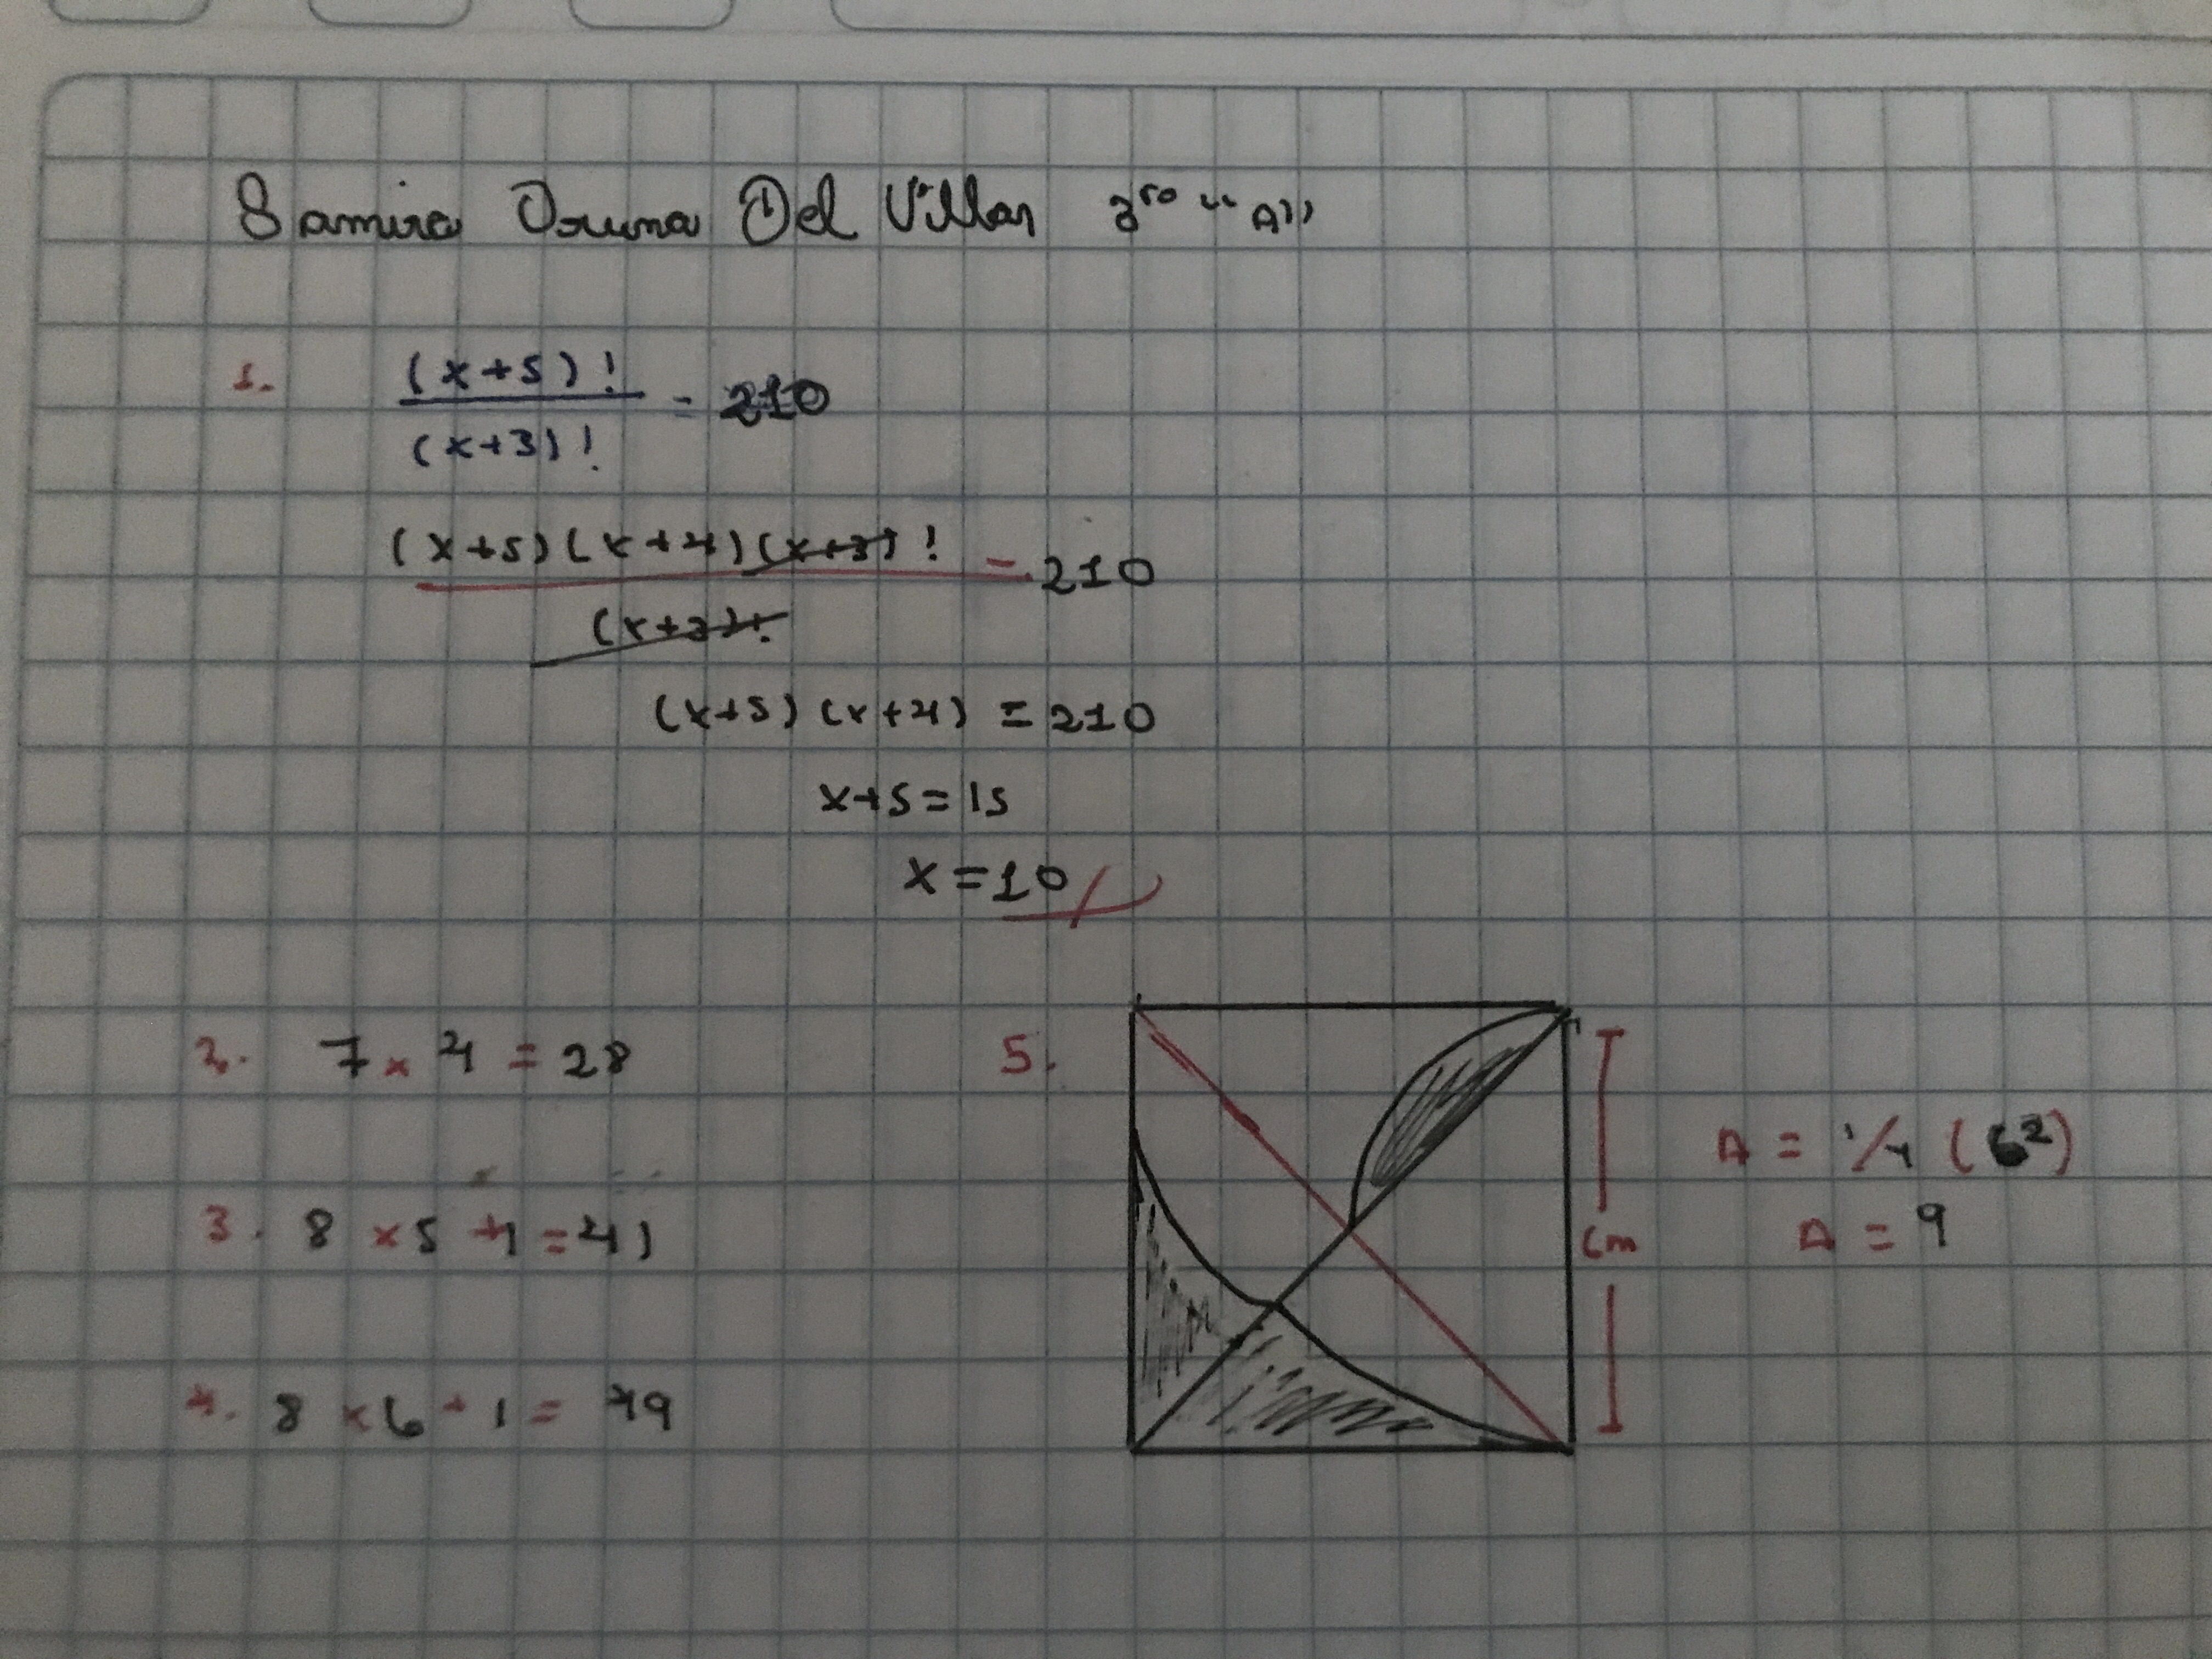 Samira Oruna Del Villar 3ro "A"
1. (x+5)! / (x+3)! = 210
(x+5)(x+4)(x+3)! / (x+3)! = 210
(x+5)(x+4) = 210
x+5=15
x=10
2. 7 x 4 = 28
3. 8 x 5 +1 = 41
4. 8 x 6 + 1 = 49
5.
cm
A = 1/4 (6²)
A = 9